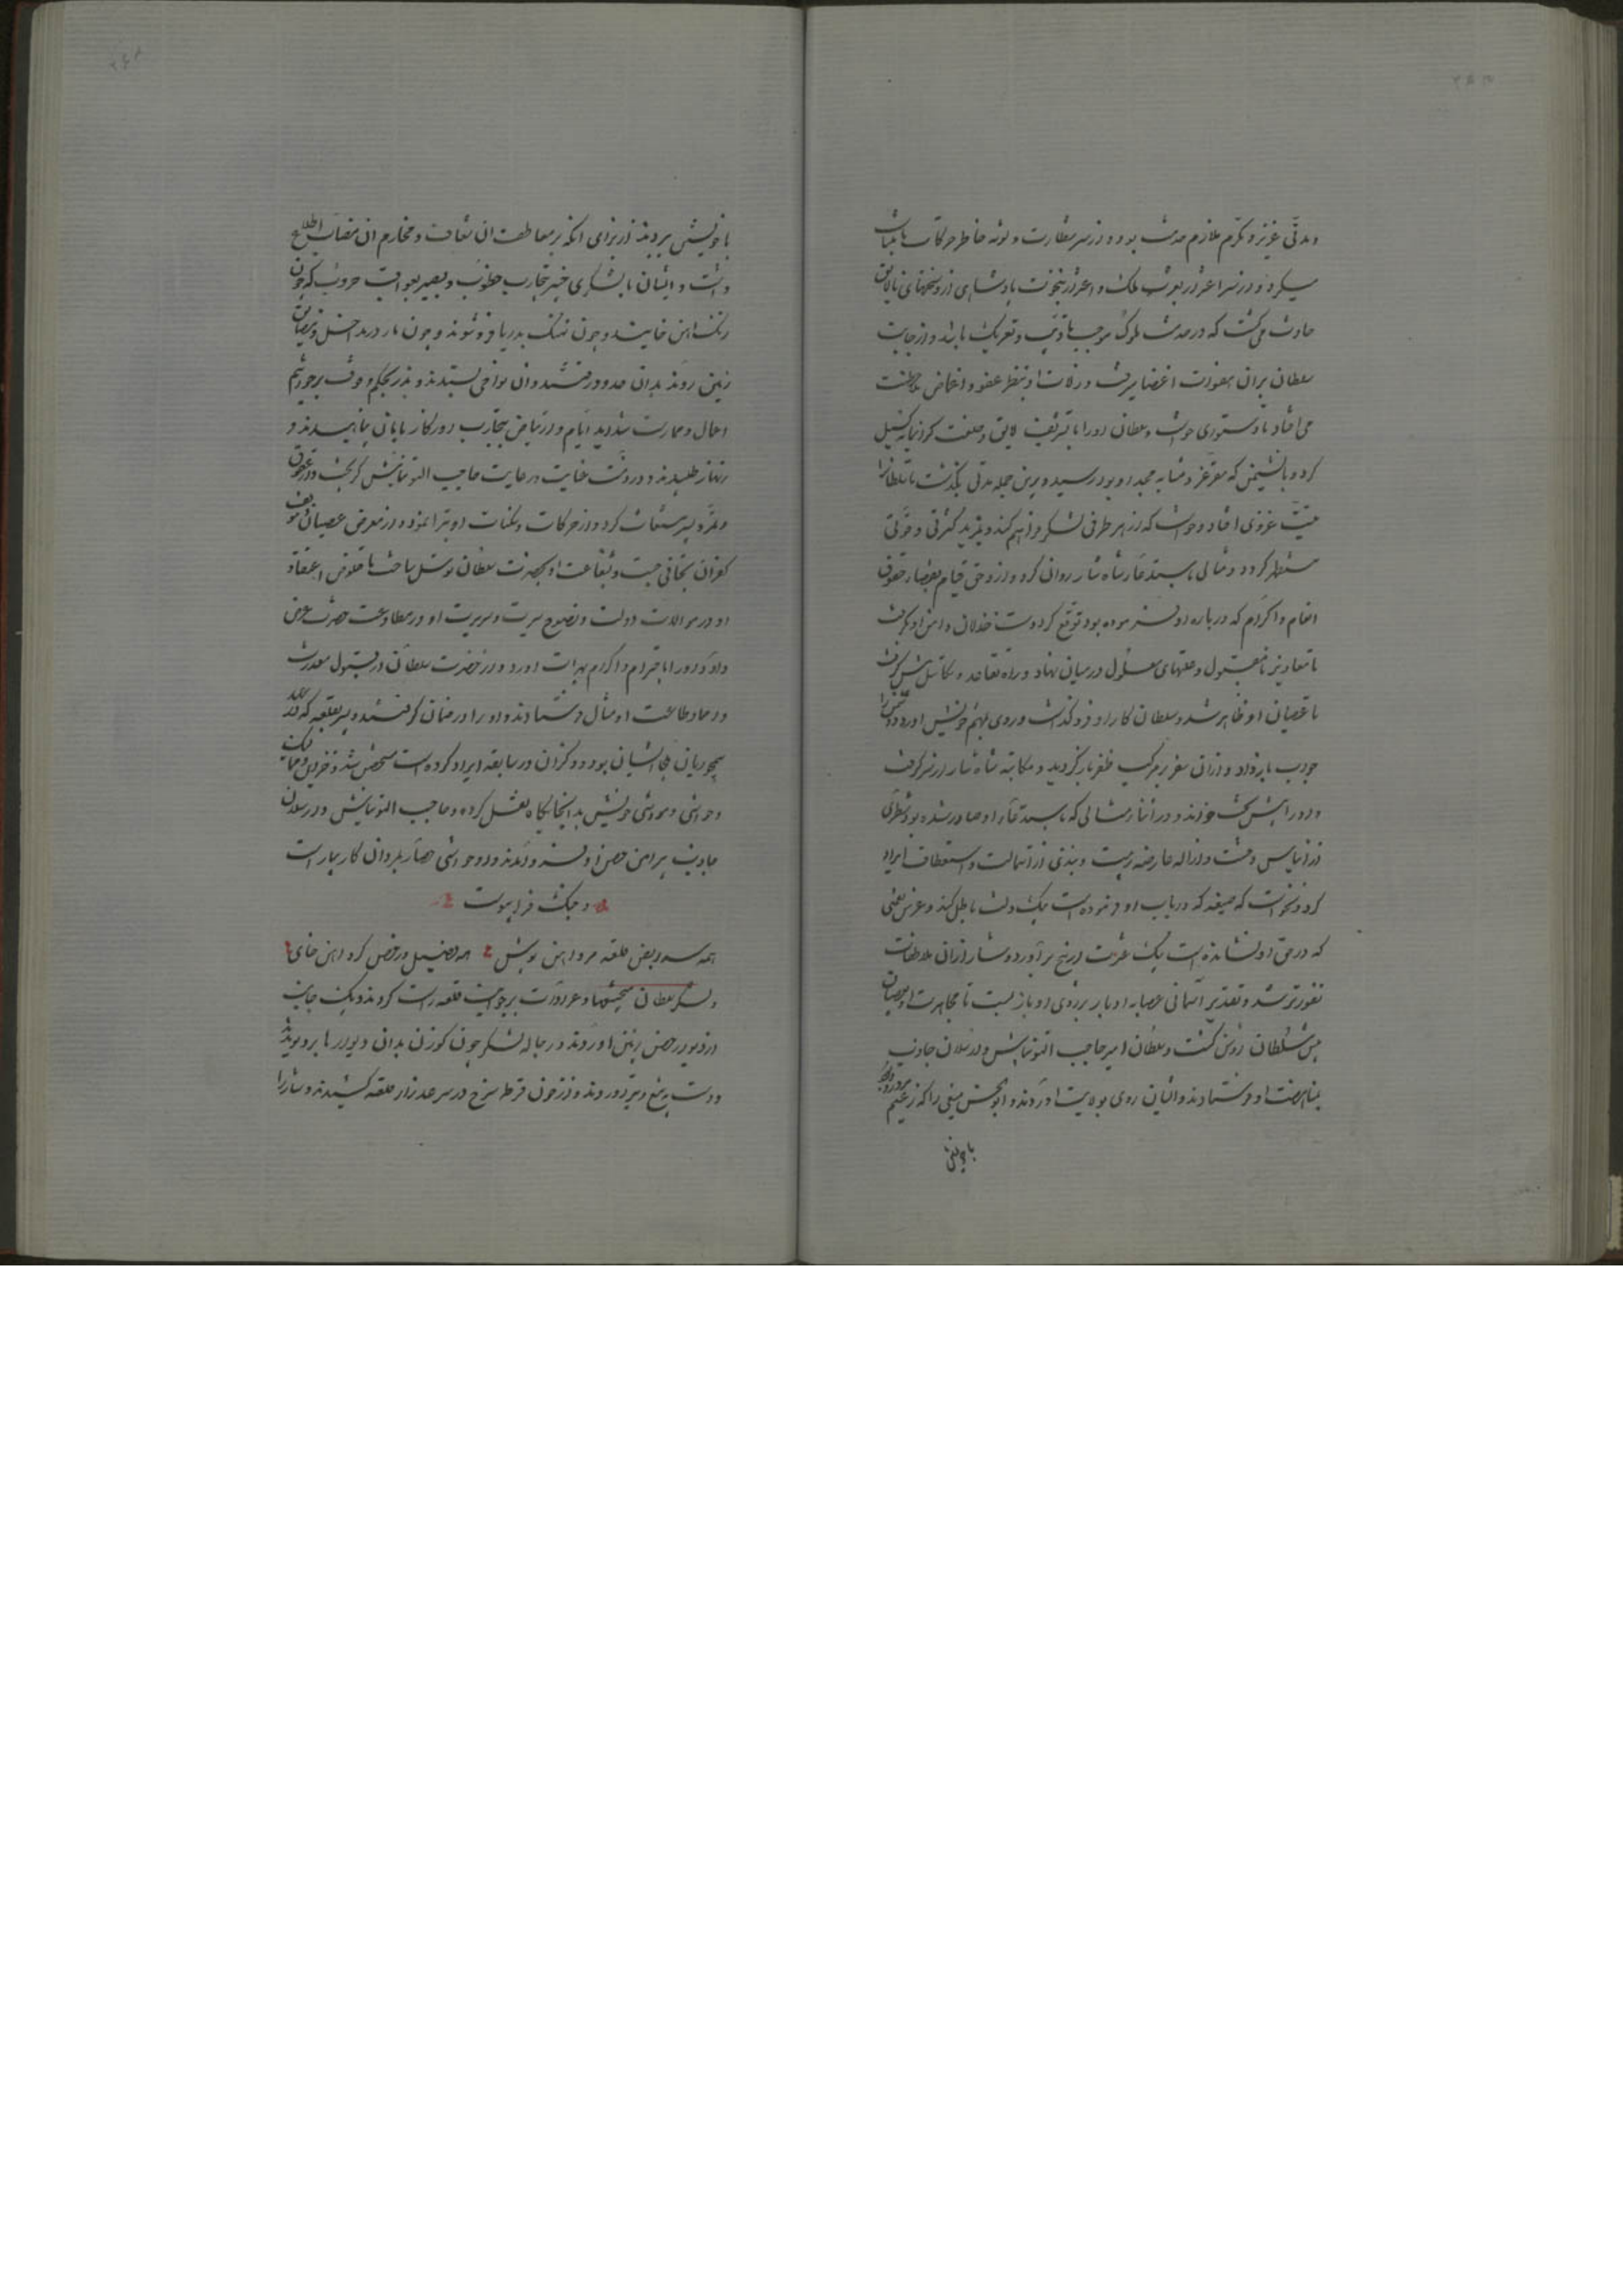 و مدتی عزیز و مکرم ملازم خدمت بود و از سر بطارت و لوثه خاطر حرکات نامناسب
میکرد و از سر اعتزاز بعزت ملک و اغترار بنخوت پادشاهی از او سخنهای نالایق
حادث می گشت که در خدمت ملوک موجب تادیب و تعریک باشد و از جانب
سلطان بران هفوات اغضا میرفت و زلات او بنظر عفو و اغماض ملاحظت
می افتاد تا دستوری خواست و سلطان او را با تشریف لایق و خلعت گرانمایه گسیل
کرد و بانشیمن که مقر عز و مثابه مجد او بود رسید و برین جمله مدتی بگذشت تا سلطانرا
نیت غزوی افتاد و خواست که از هر طرفی لشکر فراهم کند و بمزید کثرتی و قوتی
مستظهر گردد و مثالی باستدعای شاه شار روان کرد و از وی حق قیام بقضای حقوق
انعام و اکرام که درباره او فرموده بود توقع کرد دست خذلان دامن او بگرفت
تا معاذیر نامقبول و علتهای معلول در میان نهاد و راه تقاعد و تکاسل پیش گرفت
تا عصیان او ظاهر شد و سلطان کار او فرو گذاشت و روی بمهم خویش اورد و
جواب باز داد و ازان سفر بر مرکب ظفر باز گردید و مکاتبه شاه شار از سر گرفت
و او را پیش تخت خواند و در اثنای مثالی که باستدعای او صادر شده بود شطری
از ایناس وحشت و ازاله عارضه ریبت و نبذی از استمالت و استعطاف ایراد
کرد و نخواست که صنیعه که در باب او فرموده است بیک ذلت باطل کند و غرس نعمتی
که در حق او نشانده است بیک عثرت از بیخ براورد و شار ازان ملاطفات
نفورتر شد و تقدیر آسمانی عصابه ادبار بر روی او باز بست تا مجاهرت او بعصیان
پیش سلطان روشن گشت و سلطان امیر حاجب التونتاش و ارسلان جاذب
بمناهضت او فرستادند و ایشان روی بولایت او آوردند و ابوالحسن منیعی را که زعیم مروالرود بود
با خویشتن
با خویشتن بردند از برای انکه بر معاطف ان شعاب و مخارم ان مضایق اطلاع
داشت و ایشان با لشکری خبیر بتجارب خطوب و بصیر بعواقب حروب که چون
زنگ اهن خایند و چون نهنگ بدریا فرو شوند و چون مار در مداخل و مضایق
زمین روند بدان حدود رفتند و ان نواحی بستدند و پدر بحکم وقوف بر خواتیم
اعمال و ممارست شداید ایام و ارتیاض بتجارب روزگار بامان پناهید و
زنهار طلبید و در دست عنایت و رعایت حاجب التونتاش گریخت و از عقوق
و تمرد پسر استغاثت کرد و از حرکات و سکنات او تبرا نمود و از معرض عصیان و موقف
کفران تجافی جست و شفاعت او بحضرت سلطان توسل ساخت تا خلوص اعتقاد
او در موالات دولت و نصوح سریت و سریرت او در مطاوعت حضرت عرض
داد و او را باحترام و اکرام بهرات اورد و از حضرت سلطان در قبول معذرت
و احماد طاعت او مثال فرستادند و او را در ضمان گرفتند و پسر بقلعه که در عهد
سیمجوریان ملجا ایشان بود و ذکران در سابقه ایراد کرده است متحصن شد و خزاین و ممالیک
و حواشی و مواشی خویش بدانجایگاه نقل کرده و حاجب التونتاش و ارسلان
جاذب پیرامن حصن او فرود آمدند و در حواشی حصار مردان کار بیاراست
و جنگ در پیوست
همه سر بفض حلقه مرد اهن پوش همه بفصیل در قفص کرد اهن خای
و لشکر سلطان منجنیقها و عرادات بر جوانب قلعه راست کردند و یک جانب
از دیوار حصن بزمین اوردند و رجاله لشکر چون گوزن بدان دیوارها بر دویدند
و دست به تیغ و تیر اوردند و از خون قرطه سرخ در سر هر زار حلقه کشیدند و شار را